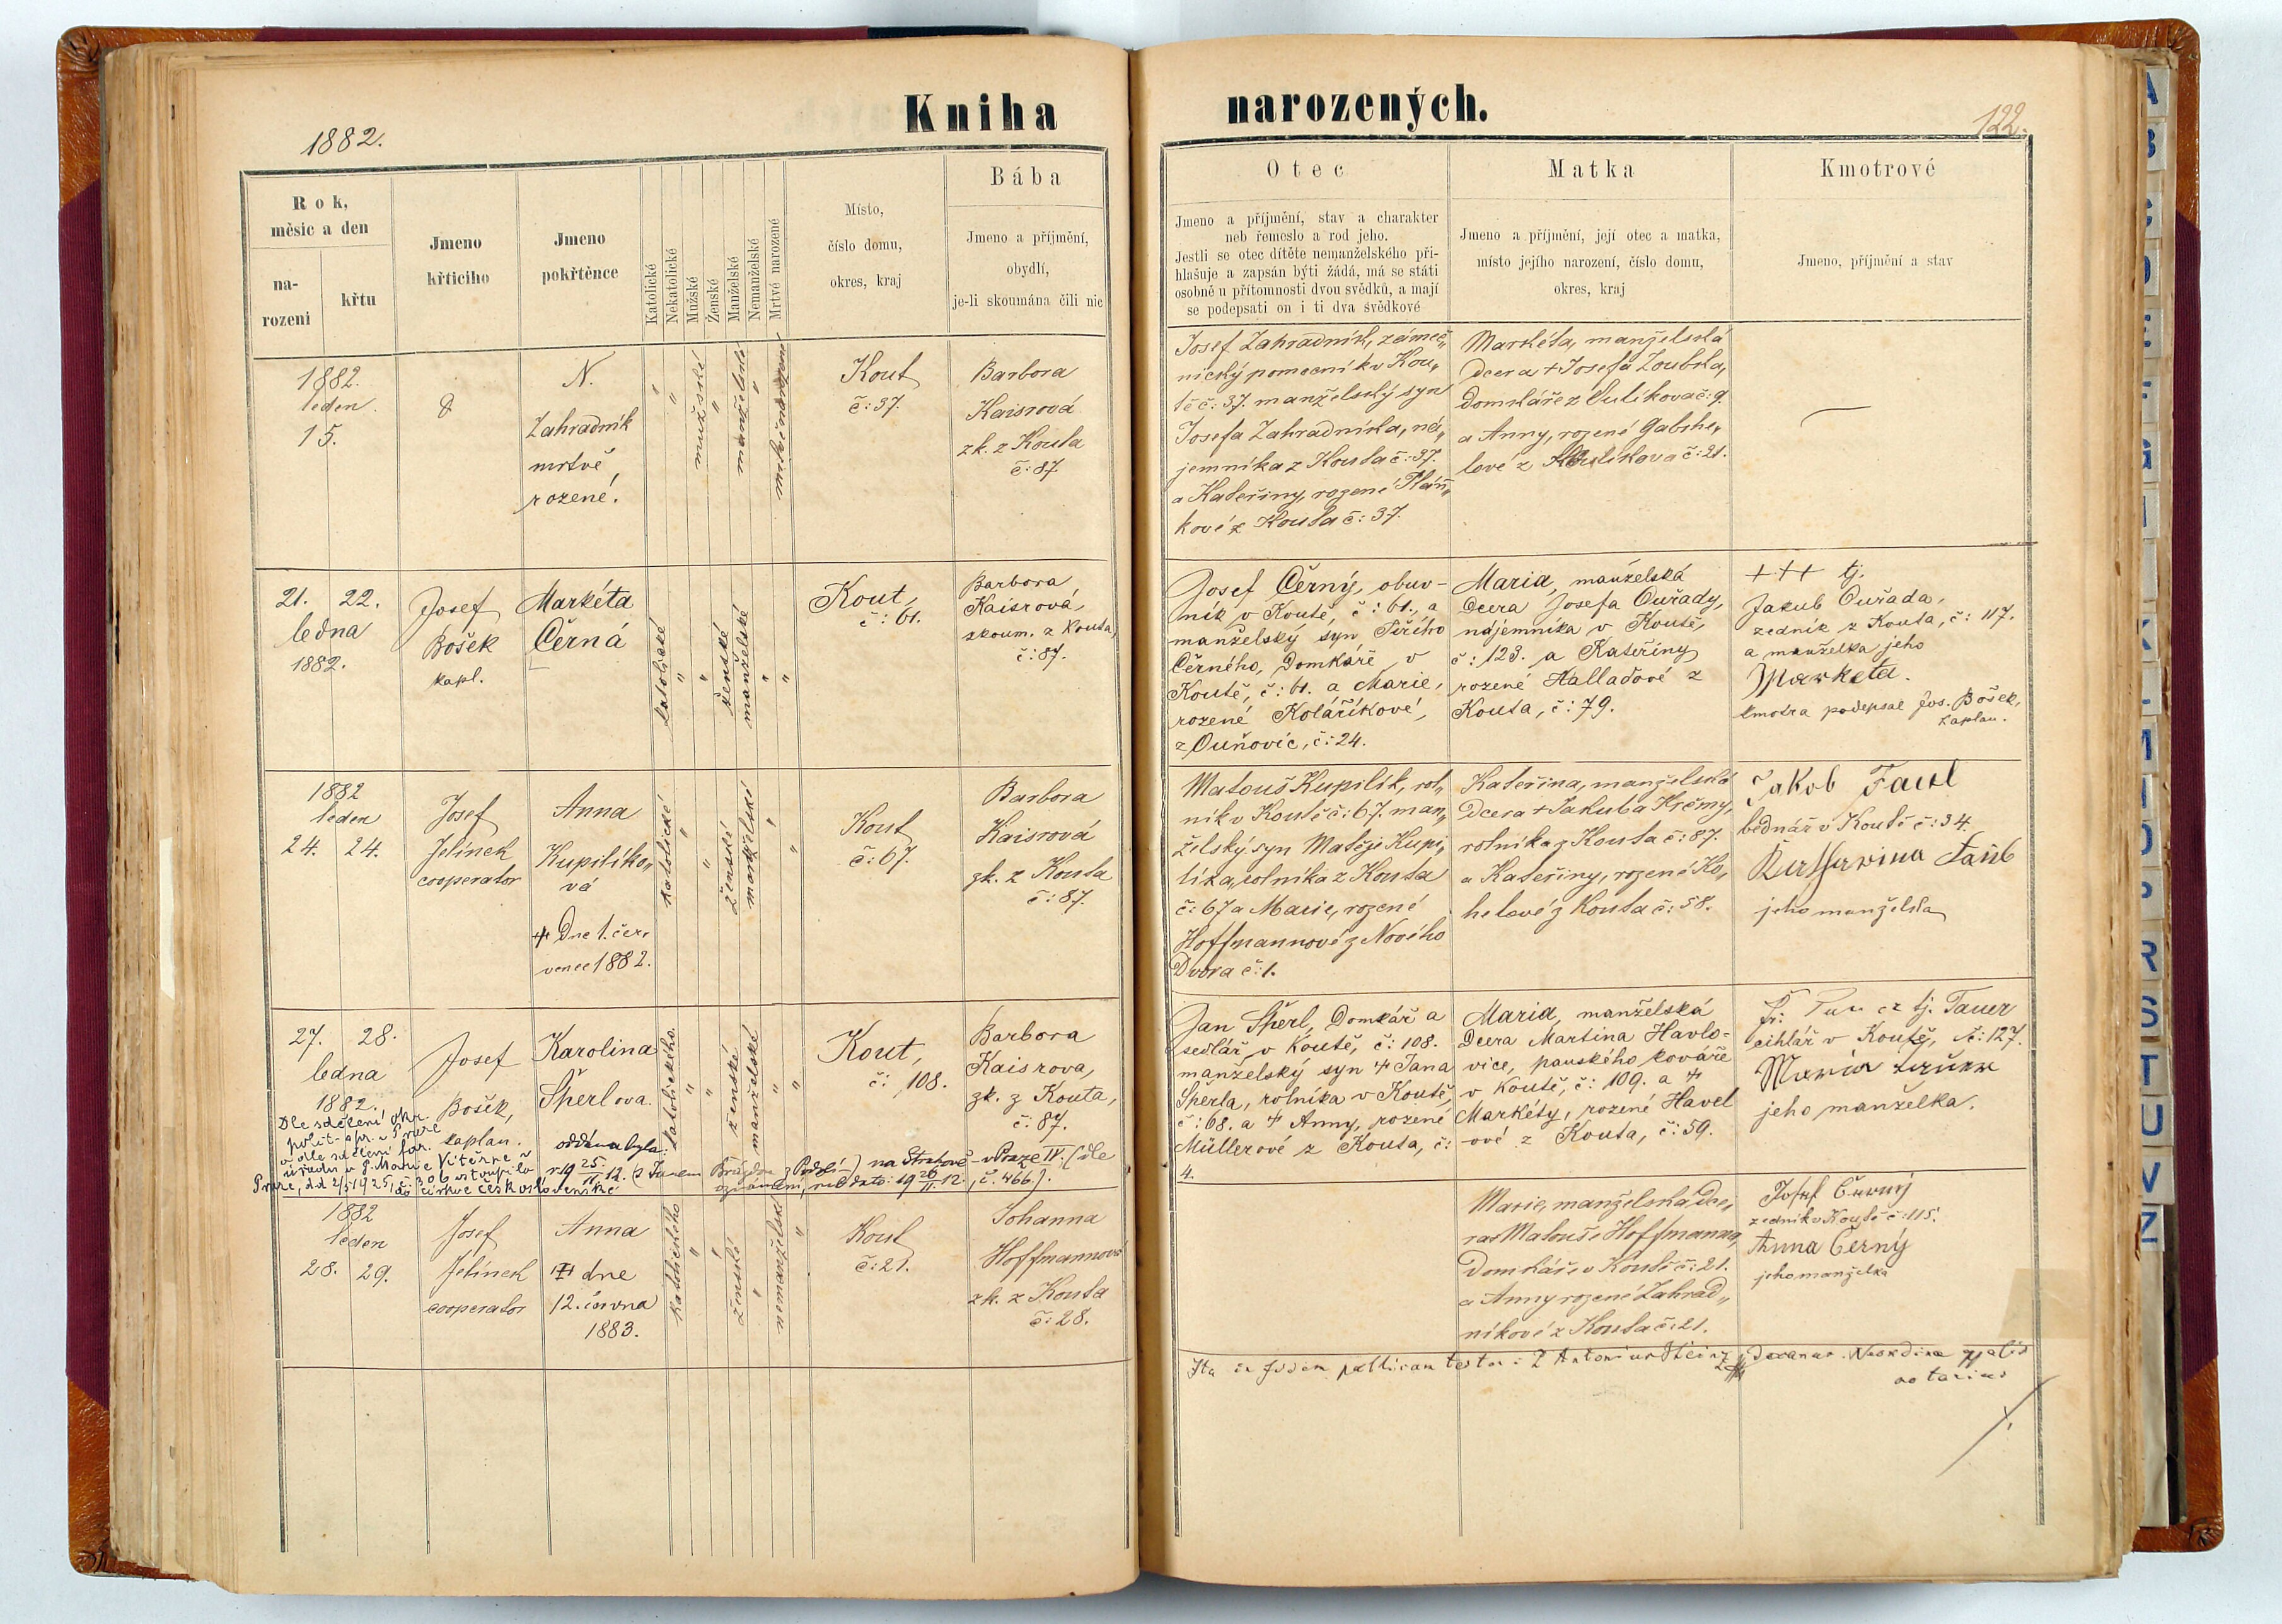 Kniha
narozených.
1882.
122.
Rok,
měsíc a den
na-
rozeni
křtu
Jmeno
křticiho
Jmeno
pokřtěnce
Katolické
Nekatolické
Mužské
Ženské
Manželské
Nemanželské
Mrtvé narozené
Místo,
číslo domu,
okres, kraj
Bába
Jmeno a příjmění,
obydlí,
je-li skoumána čili nic
Otec
Jmeno a příjmění, stav a charakter
neb řemeslo a rod jeho.
Jestli se otec dítěte nemanželského při-
hlašuje a zapsán býti žádá, má se státi
osobně u přítomnosti dvou svědků, a mají
se podepsati on i ti dva svědkové
Matka
Jmeno a příjmění, její otec a matka,
místo jejího narození, číslo domu,
okres, kraj
Kmotrové
Jmeno, příjmění a stav
1882.
leden.
15.
N.
Zahradník
mrtvě
rozené.
"
"
mužské
"
manželské
"
Kout
č: 37.
Barbora
Kaisrová
zk. z Kouta
č: 87
Josef Zahradník, zámeč„
nický pomocník v Kou„
tě č: 37. manželský syn
Josefa Zahradníka, ná„
jemníka z Kouta č: 37.
a Kateřiny, rozené Pláň„
kové z Kouta č: 37.
Markéta, manželská
dcera + Josefa Zoubka,
domkáře z Oulíkova č: 9
a Anny, rozené Gabrhe„
lové z Oulíkova č: 21.
21. 22.
ledna
1882.
Josef
Bošek
kapl.
Markéta
Černá
katolické
"
"
ženské
manželské
"
"
Kout,
č: 61.
Barbora
Kaisrová,
zkoum. z Kouta,
č: 87.
Josef Černý, obuv-
ník v Koutě, č: 61., a
manželský syn Jiřího
Černého, domkáře v
Koutě, č: 61. a Marie,
rozené Koláříkové,
z Ouňovic, č: 24.
Maria, manželská
dcera Josefa Ouřady,
nájemníka v Koutě,
č: 123. a Kateřiny
rozené Halladové z
Kouta, č: 79.
+++ tj.
Jakub Ouřada,
zedník z Kouta, č: 117.
a manželka jeho
Marketa.
kmotra podepsal Jos. Bošek,
kaplan.
1882
leden
24. 24.
Josef
Jelínek
cooperator
Anna
Kupilíko„
vá
+ Dne 1. čer„
vence 1882.
katolické
"
"
ženské
manželské
"
"
Kout
č: 67.
Barbora
Kaisrová
zk. z Kouta
č: 87.
Matouš Kupilík, rol„
ník v Koutě č: 67. man„
želský syn Matěje Kupi„
líka, rolníka z Kouta
č: 67 a Marie, rozené
Hoffmannové z Nového
Dvora č: 1.
Kateřina, manželská
dcera + Jakuba Krčmy,
rolníka z Kouta č: 87.
a Kateřiny, rozené Ko„
helové z Kouta č: 58.
Jakob
bednář v Koutě č: 34.
Katharina
jeho manželka
27. 28.
ledna
1882.
Josef
Bošek,
kaplan.
Karolina
Šperlova.
katolického
"
"
ženské
manželské
"
"
Kout,
č: 108.
Barbora
Kaisrova,
zk. z Kouta,
č: 87.
Dle sdělení okr.
polit. spr. v Praze
a dle sdělení far.
úřadu u P. Marie Vítězné v
Praze, d.d. 2/5 1925, č. 306 vstoupila
do církve českoslovénské
oddána byla:
r. 19 25/II. 12. (s Janem na Strahově v Praze IV. (dle
oznámení, ref. dato: 19 26/II. 12, č. 466).
Jan Šperl, Domkář a
sedlář v Koutě, č: 108.
manželský syn + Jana
Šperla, rolníka v Koutě,
č: 68. a + Anny, rozené
Müllerové z Kouta, č:
4.
Maria, manželská
dcera Martina Havlo-
vice, panského kováře
v Koutě, č: 109. a +
Markéty, rozené Havel
-ové z Kouta, č: 59.
tj. Tauer
cihlář v Koutě, č: 127.
Maria
jeho manželka.
1882
leden
28. 29.
Josef
Jelínek
cooperator
Anna
+ dne
12. června
1883.
katolického
"
"
ženské
"
nemanželské
"
Kout
č: 21.
Johanna
Hoffmannová
zk. z Kouta
č: 28.
Marie, manželská dce„
ra Matouše Hoffmanna,
domkáře v Koutě č: 21.
a Anny rozené Zahrad„
níkové z Kouta č: 21.
Josef Černý
zedník v Koutě č: 115.
Anna Černý
jeho manželka
Ita in fidem publicam testor: Antonius
notarius